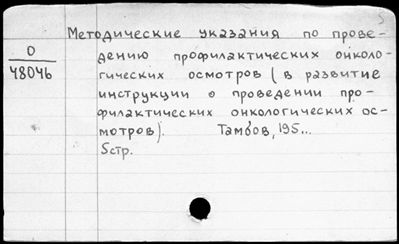 5
Методические указания по прове-
О
48046
дению профилактических онколо-
гических осмотров (в развитие
инструкции о проведении про-
филактических онкологических ос-
мотров). Тамбов, 195...
5стр.